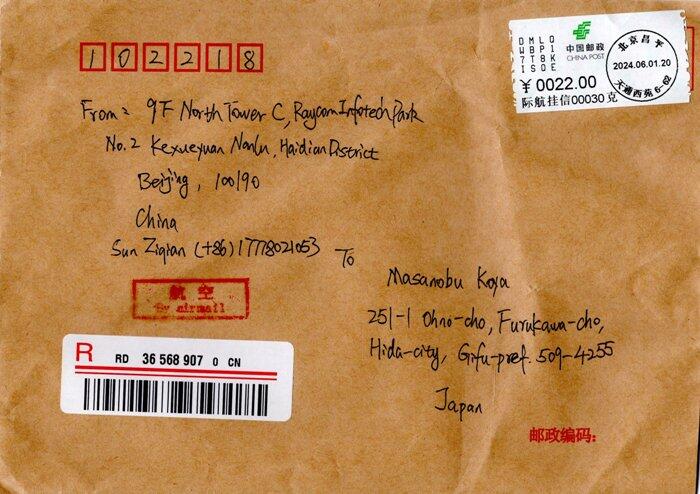 102218
DMLQ
WBP1
7T8K
ISOE
中国邮政
CHINA POST
¥0022.00
际航挂信00030克
北京昌平
2024.06.01.20
天通西苑6-02
From: 9F North Tower C, Raycom Infotech Park
No.2 Kexueyuan Nanlu, Haidian District
Beijing, 100190
China
Sun Ziqian (+86)17778021053
To
Masanobu Koya
251-1 Ohno-cho, Furukawa-cho,
Hida-city, Gifu-pref. 509-4255
Japan
航空
By airmail
R RD 36 568 907 0 CN
邮政编码: